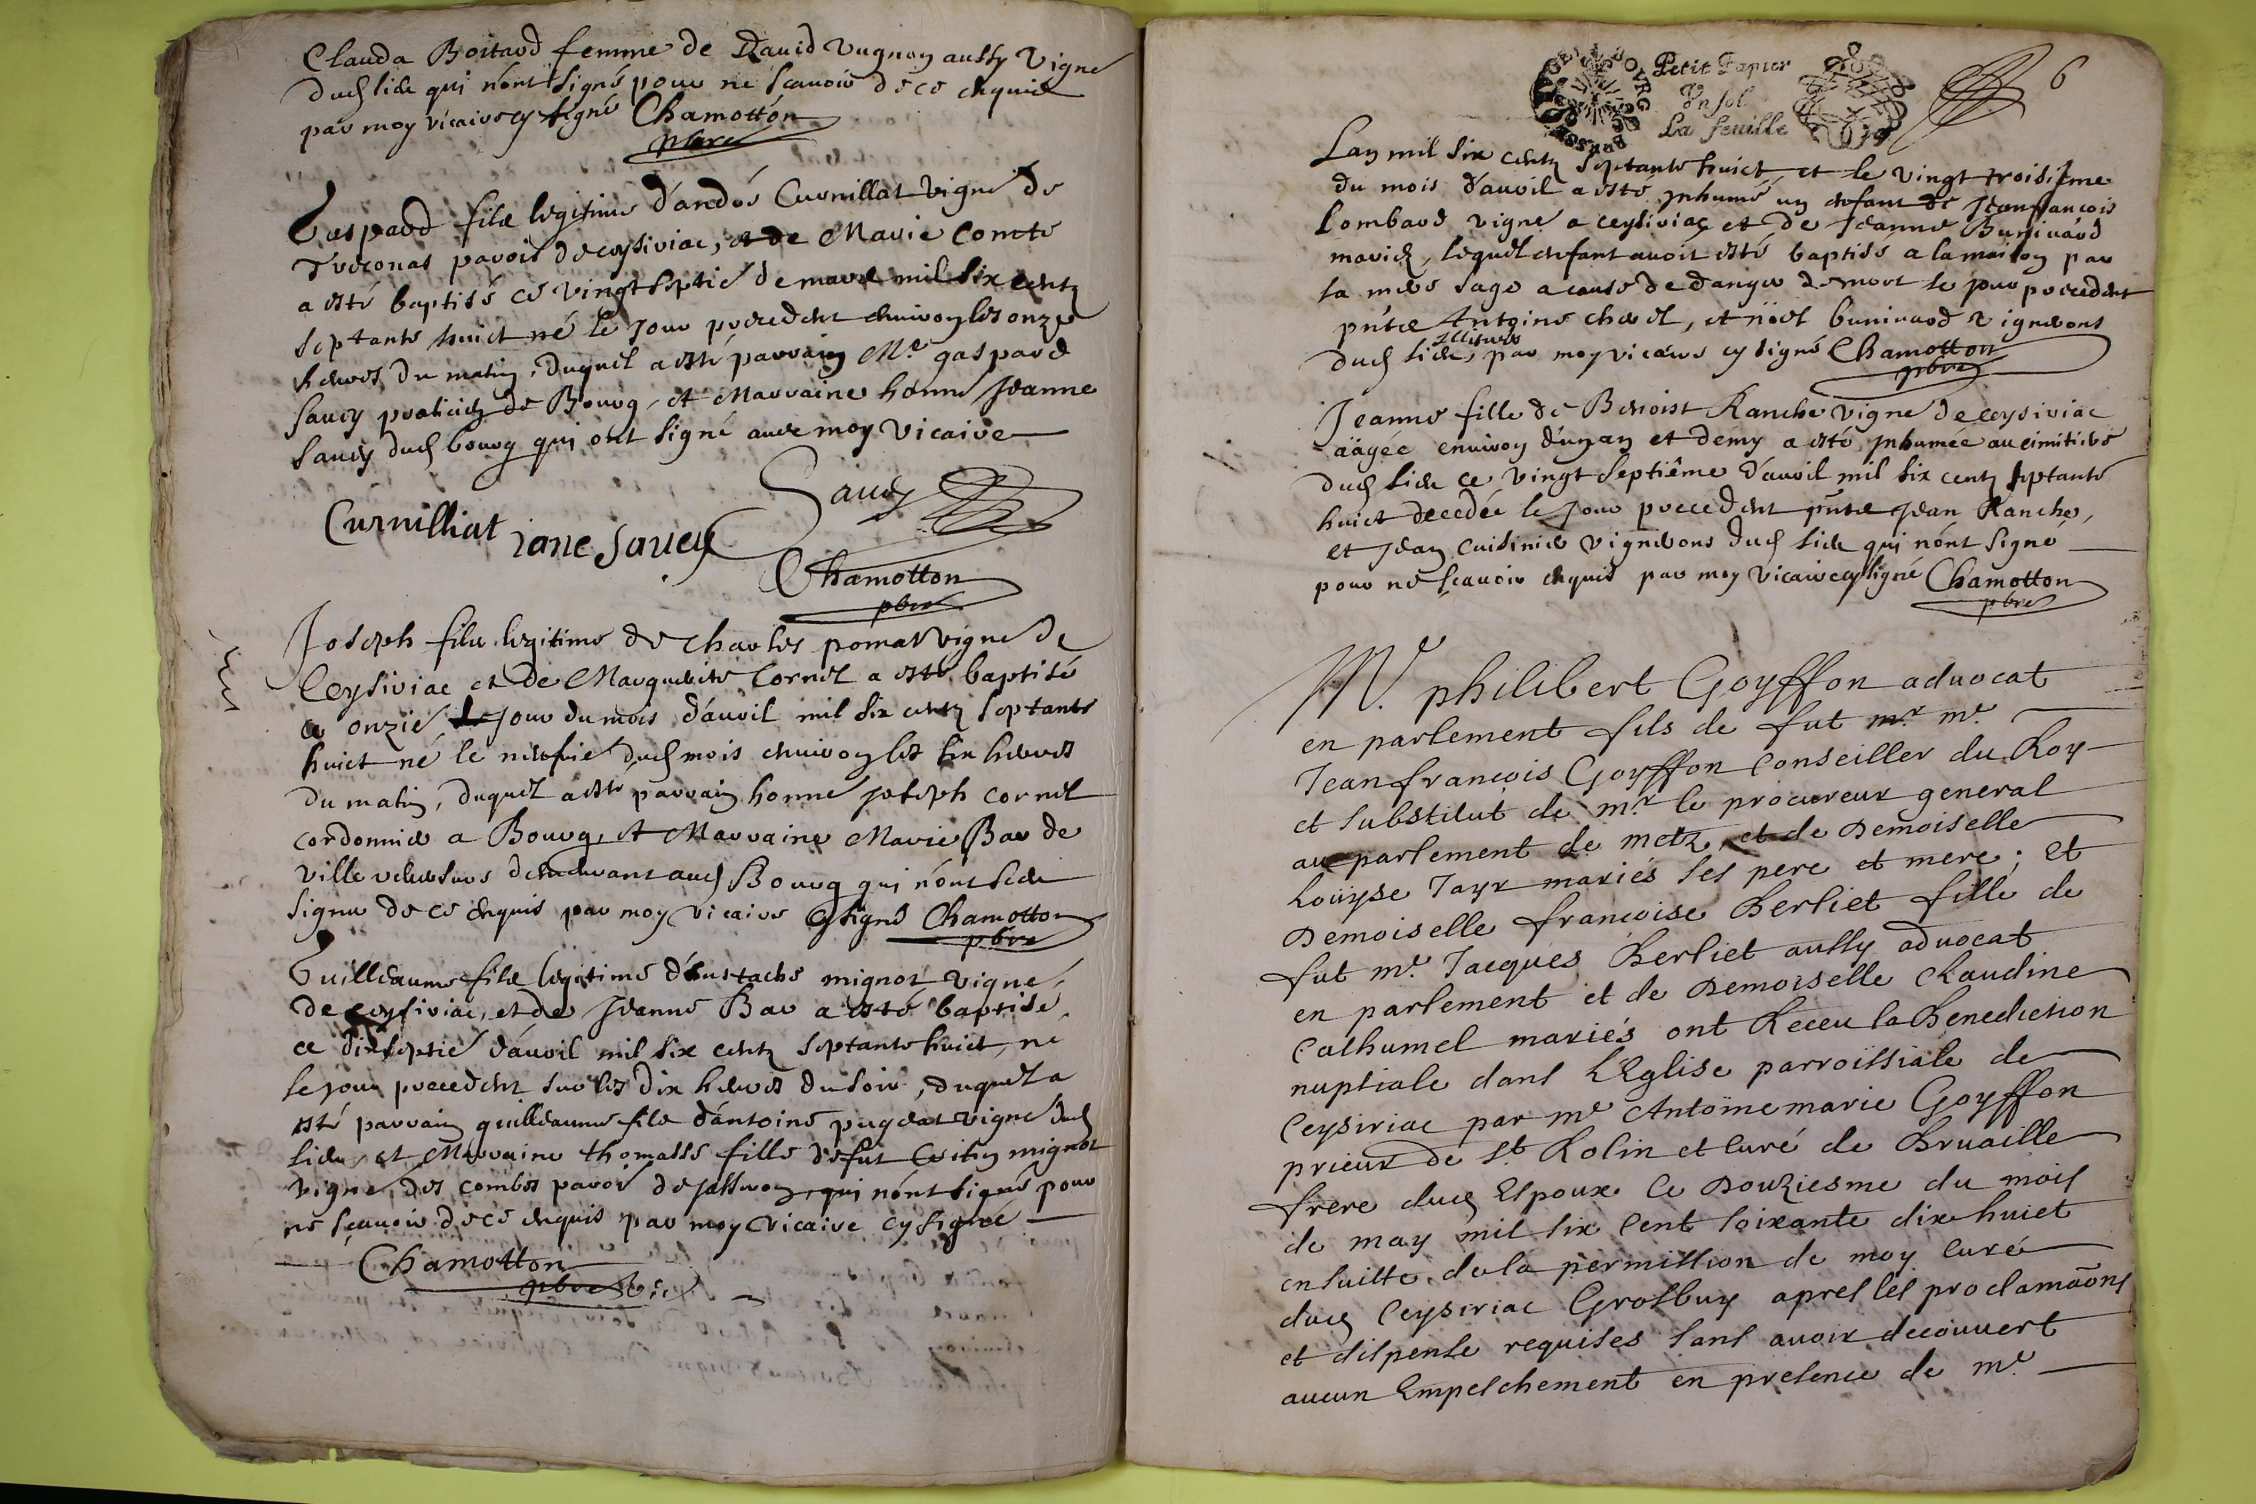 Clauda Boitard femme de David Vugnon aussy Vigne
dud lieu qui n'ont signé pour ne scavoir de ce enquis
par moy vicaire cy signé Chamotton
pbre
Gaspard filz legitime d'andré Curnillat vigne de
Treconas parois de ceysiriac, et de Marie Comte
a esté baptisé ce vingt septie de mars mil six centz
septante huict né le jour precedent environ les onze
heures du matin, duquel a esté parrain Mr gaspard
Saucy praticien de Bourg, et Marraine honne Jeanne
Saucy dud bourg qui ont signé avec moy vicaire
Saucy
Curnilliat jane sauey
Chamotton
pbre
Joseph filz legitime de Charles pomat vigne de
Ceysiriac et de Marguerite Cornet a esté baptisé
ce onzie jour du mois d'avril mil six centz septante
huict né le neufvie dud mois environ les six heures
du matin, duquel a esté parrain honne joseph cornet
cordonnier a Bourg, et Marraine Marie Bar de
ville demeurant aud Bourg qui n'ont sceu
signer de ce enquis par moy vicaire cy signé Chamotton
pbre
Guilleaume filz legitime d'Eustache mignot vigne
de ceysiriac, et de Jeanne Bar a esté baptisé
ce dixseptie d'avril mil six centz septante huict, né
le jour precedent sur les dix heures du soir, duquel a
esté parrain guilleaume filz d'antoine pugeat vigne dud
lieu, et Marraine thomasse fille de fut mignot
vigne des combes parois de jasseron, qui n'ont signé pour
ne sçavoir de ce enquis par moy vicaire cy signé
Chamotton
pbre
Petit Papier
Un sol
La feuille
6
Lan mil six centz septante huict, et le vingt troisieme
du mois d'avril a esté inhumé un enfant de Jeanfrancois
Lombard vigne a ceysiriac et de Jeanne Bunivard
mariez, lequel enfant avoit esté baptisé a la maison par
la mere sage a cause de danger de mort le jour precedent
pnts Antoine chanel, et noel bunivard vignerons
dud lieu, illiterés par moy vicaire cy signé Chamotton
pbre
Jeanne fille de Benoist Ranche vigne de ceysiriac
aagée environ d'un an et demy a esté inhumée au cimitiere
dud lieu ce vingt septiême d'avril mil six centz septante
huict decedée le jour precedent pnts Jean Ranche,
et Jean Cuisinier vignerons dud lieu qui n'ont signé
pour ne sçavoir enquis par moy vicaire cy signé Chamotton
pbre
Me. philibert Goyffon advocat
en parlement fils de fut mr. me.
Jean francois Goyffon Conseiller du Roy
et substitut de mr. le procureur general
au parlement de metz, et de Demoiselle
Louÿse Tayr mariés ses pere et mere; Et
Demoiselle françoise Berliet fille de
fut me. Jacques Berliet aussy advocat
en parlement et de Demoiselle Claudine
Cathumel mariés ont Receu la Benediction
nuptiale dans L'Eglise parroissiale de
Ceysiriac par me Antoine marie Goyffon
prieur de St. Kolin et Curé de Bruaille
frere dud Espoux Ce Douziesme du mois
de may mil six Cent soixante dix huict
ensuitte de la permission de moy Curé
dud Ceysiriac Grosbuy apres les proclamaõns
et dispense requises sans avoir decouvert
aucun Empeschement en presence de me.